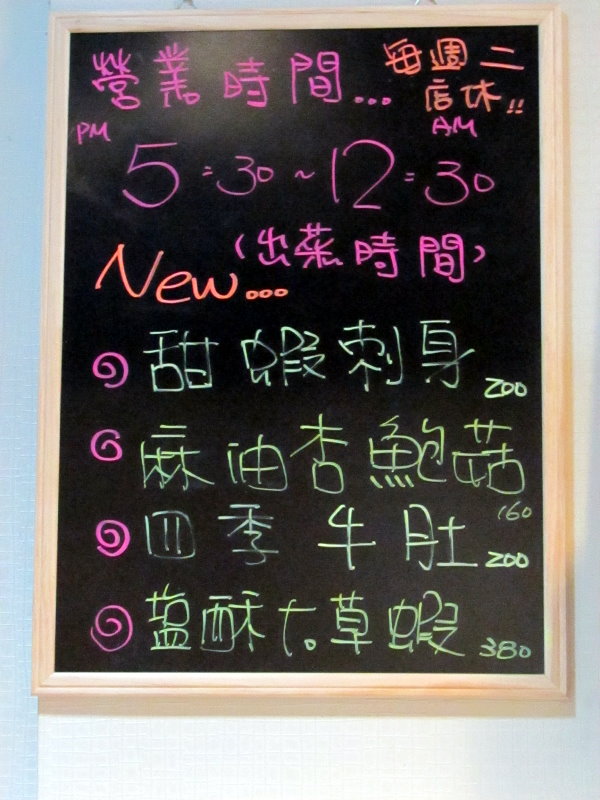 營業時間...
每週二
店休!!
PM AM
5:30~12:30
(出菜時間)
New...
甜蝦刺身 200
麻油杏鮑菇 160
四季牛肚 200
塩酥大草蝦 380